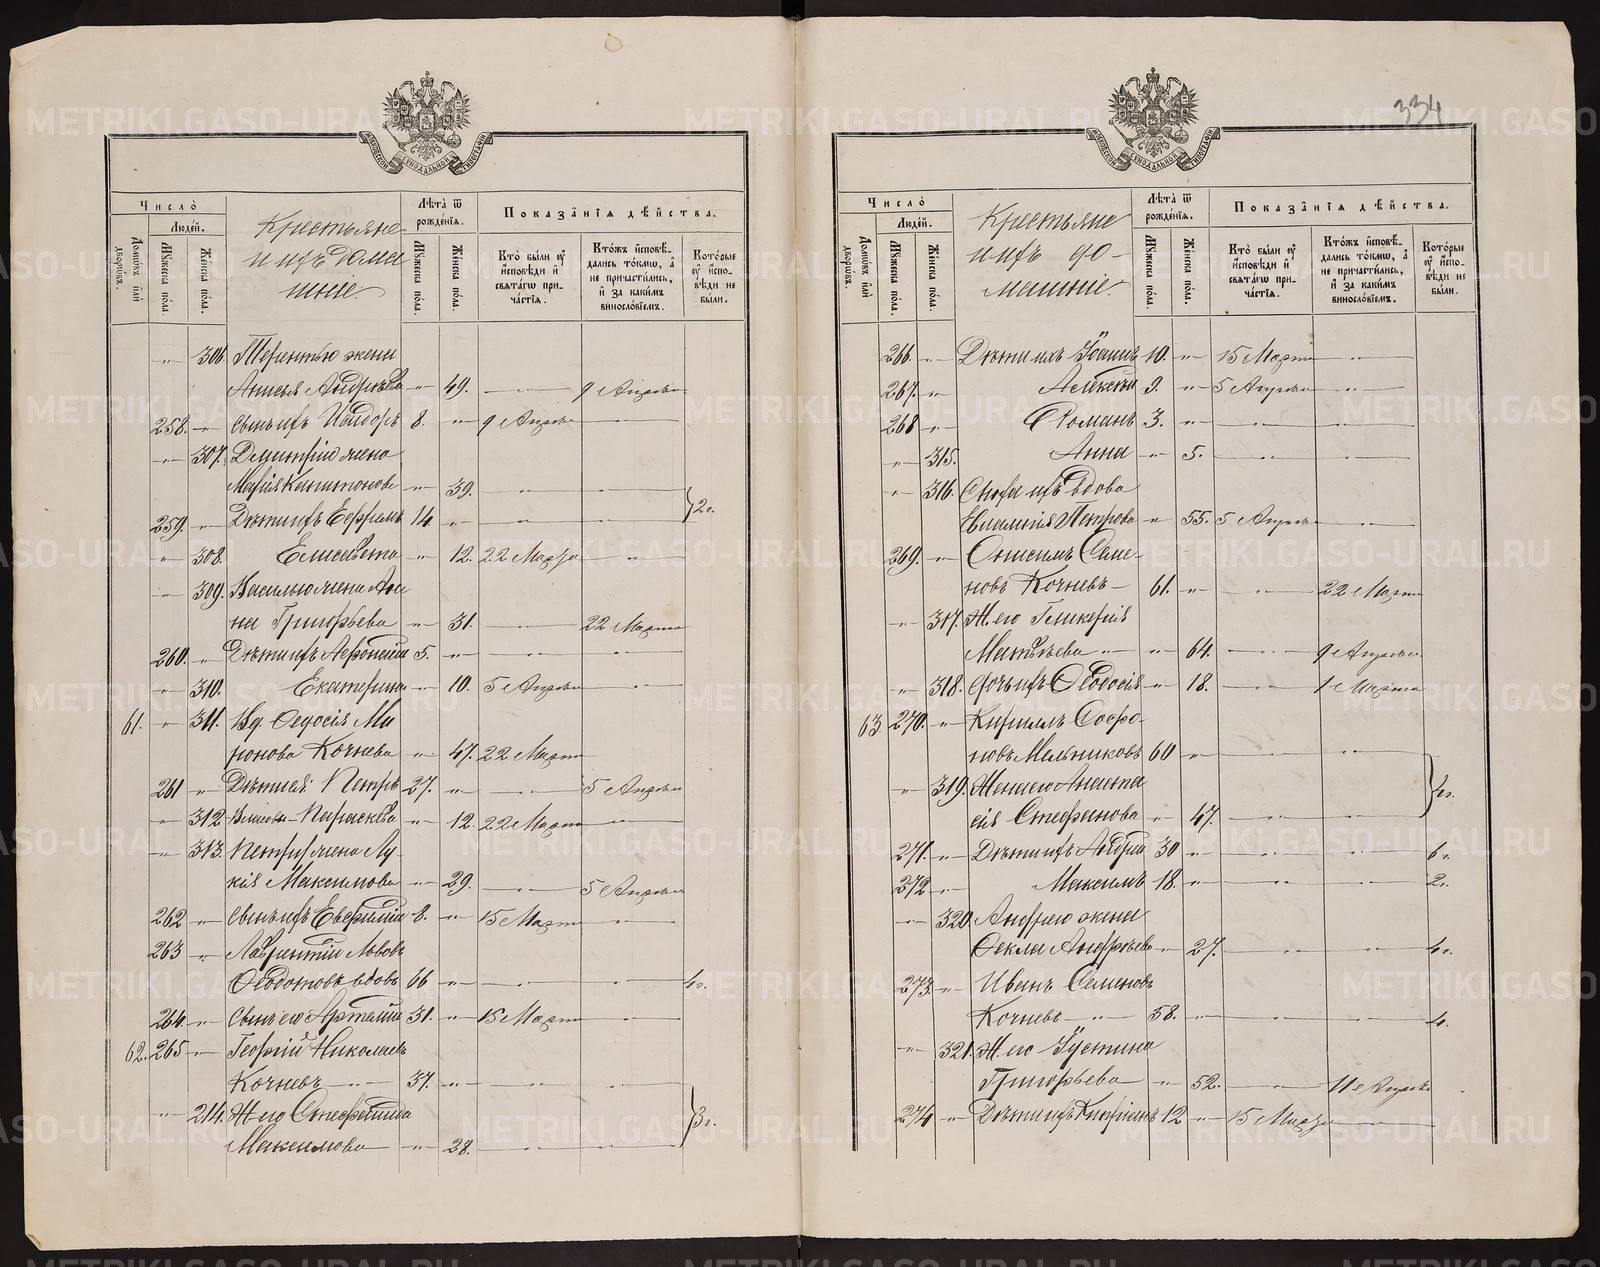 334
МОСКОВСКОЙ СУНОДАЛЬНОЙ ТИПОГРАФІИ
Число̀
Людей.
Домовъ или дворовъ.
Мꙋжеска пола.
Женска пола.
Крестьяне
и ихъ дома
шніе.
Лѣта̀ ѿ рожденїѧ.
Мꙋжеска пола.
Женска пола.
Показанїѧ дѣйства.
Кто̀ были оу҆ исповѣди и свѧтагѡ причастїѧ.
Кто́жъ исповѣдались то́кмѡ, а не причастились, и за какимъ винословїемъ.
Которые оу҆ исповѣди не были.
" 306. Терентью жена
Анисья Андрѣева " 49. " 9 Апрѣля
258. " Сынъ ихъ Исидоръ 8. " 9 Апрѣля "
" 307. Димитрію жена
Марія Капитонова " 39. " "
259. " Дѣти ихъ Ефремъ 14 " " " 2 г.
" 308. Елисавета " 12. 22 Марта "
" 309. Василью жена Анн
на Григорьева " 31. " 22 Марта
260. " Дѣти ихъ Афонасій 5. " " "
" 310. Екатерина " 10. 5 Апрѣля "
61. " 311. Вд. Ѳедосія Ми
ронова Кочнева " 47. 22 Марта
261 " Дѣти ея: Петръ 27. " " 5 Апрѣля
" 312 Параскева " 12. 22 Марта
" 313. Петру жена Лу-
кія Максимова " 29. " 5 Апрѣля
262 " Сынъ ихъ Евфимій 8. " 15 Марта "
263 " Лаврентій Львовъ
Ѳедотовъ вдовъ 66 " " " 4 г.
264. " Сынъ его Арталій 31. " 15 Марта "
62. 265 " Георгій Николаевъ
Кочневъ " 37. " " "
" 214. Ж его Стефанида
Максимова " 28. " 3 г.
Число̀
Людей.
Домовъ или дворовъ.
Мꙋжеска пола.
Женска пола.
Крестьяне
и ихъ до-
машніе.
Лѣта̀ ѿ рожденїѧ.
Мꙋжеска пола.
Женска пола.
Показанїѧ дѣйства.
Кто̀ были оу҆ исповѣди и свѧтагѡ причастїѧ.
Кто́жъ исповѣдались то́кмѡ, а не причастились, и за какимъ винословїемъ.
Которые оу҆ исповѣди не были.
266. " Дѣти ихъ Іоаннъ 10. " 15 Марта "
267. " Алексѣй 9. " 5 Апрѣля "
268 " Романъ 3. " "
" 315. Анна " 5. " "
" 316. Сноха ихъ вдова
Петрова " 55. 5 Апрѣля "
269. " Онисимъ Семе-
новъ Кочневъ 61. " " 22 Марта
" 317. Ж. его Гликерія
Матвѣева " " 64. " 9 Апрѣля
" 318. Дочь ихъ Ѳеодосія " 18. " 1 Марта
63. 270. " Кириллъ Софро-
новъ Мельниковъ 60 " " "
" 319. Жена его Анаста
сія Стефанова " 47. " " 4 г.
271. " Дѣти ихъ Андрей 30 " " " 6 г.
272 " Максимъ 18. " " " 2 г.
" 320. Андрею жена
Ѳекла Андрѣева " 27. " " 4 г.
273. " Иванъ Семеновъ
Кочневъ " 58. " " " 4.
" 321. Ж. его Іустина
Григорьева " 52. " 11 Апрѣля
274 " Дѣти ихъ Кипріянъ 12 " 15 Марта
METRIKI.GASO-URAL.RU